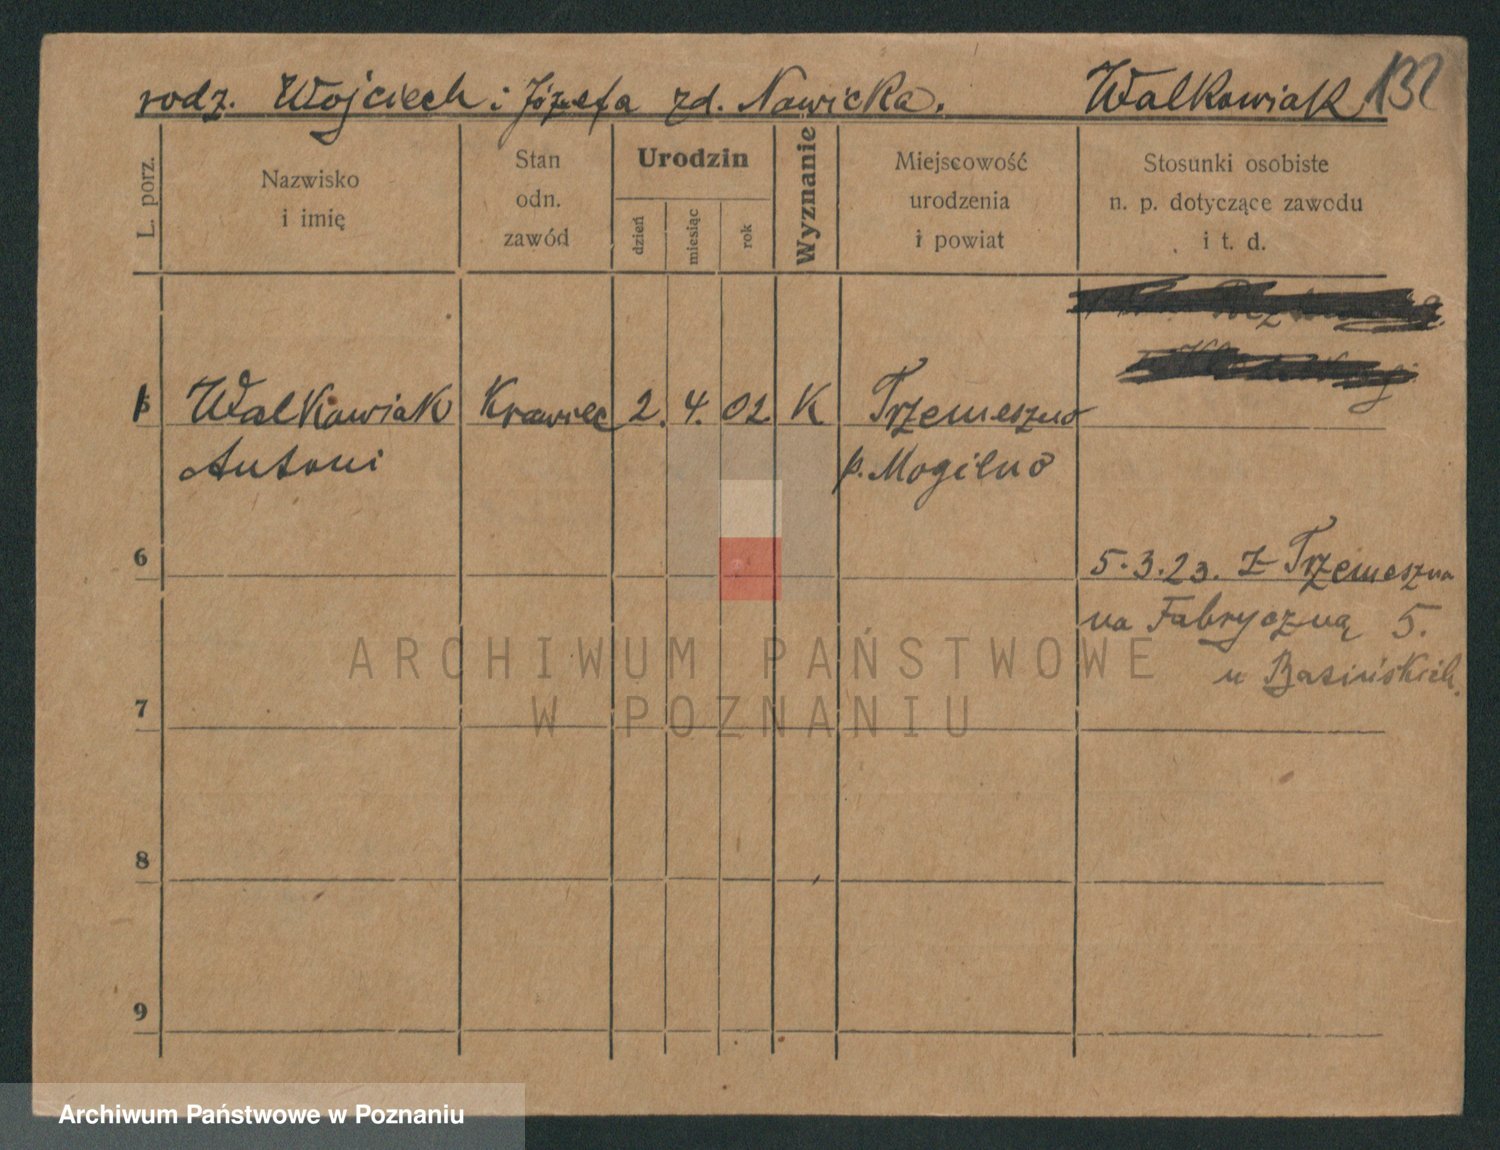 rodz. Wojciech i Józefa zd. Nowicka. Walkowiak 132
L. porz.
Nazwisko
i imię
Stan
odn.
zawód
Urodzin
dzień
miesiąc
rok
Wyznanie
Miejscowość
urodzenia
i powiat
Stosunki osobiste
n. p. dotyczące zawodu
i t. d.
Walkowiak Krawiec 2. 4. 02 K Trzemeszno
Antoni p. Mogilno
6
5.3.23. z Trzemeszna
na Fabryczną 5.
u Basińskich.
7
8
9
ARCHIWUM PAŃSTWOWE
W POZNANIU
Archiwum Państwowe w Poznaniu